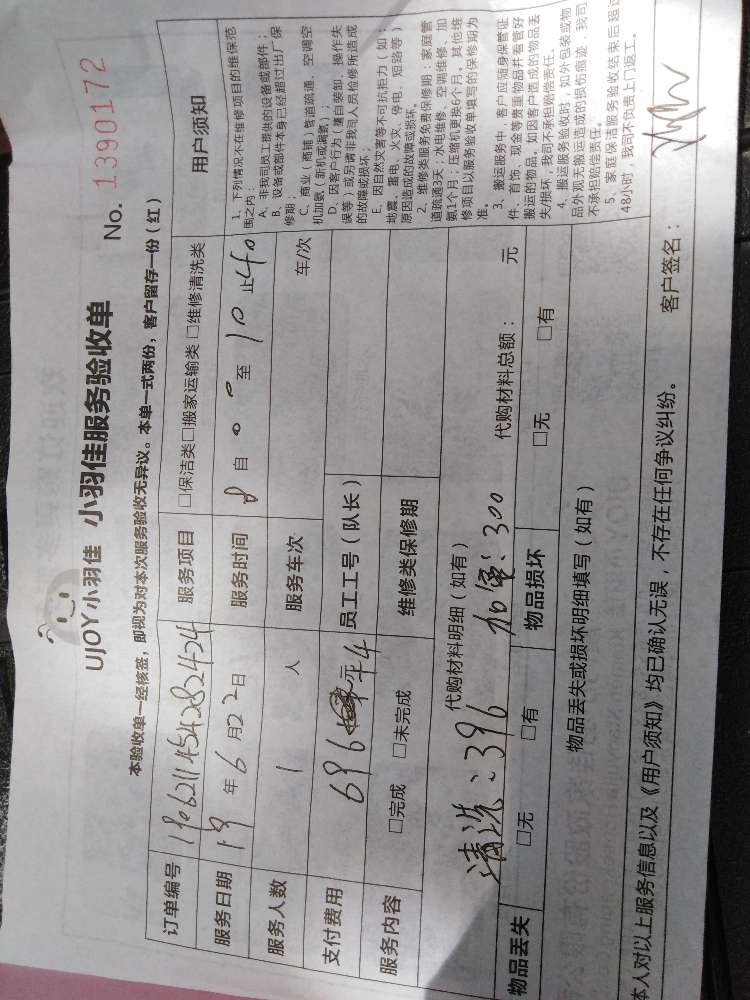 UJOY小羽佳 小羽佳服务验收单
No. 1390172
本验收单一经核签，即视为对本次服务验收无异议。本单一式两份，客户留存一份（红）
订单编号 服务项目 □保洁类□搬家运输类 □维修清洗类
服务日期 19 年 6 月 22 日 服务时间 8 自 00 至 10 止 40
服务人数 1 人 服务车次 车/次
支付费用 696 元 员工工号（队长）
服务内容 □完成 □未完成 维修类保修期
代购材料明细（如有） 代购材料总额： 元
清洗：396 加氟：300
物品丢失 □无 □有 物品损坏 □无 □有
物品丢失或损坏明细填写（如有）
用户须知
1、下列情况不在维修项目的维保范
围之内：
A、非我司员工提供的设备或部件；
B、设备或部件本身已经超过出厂保
修期；
C、商业（商铺）管道疏通、空调空
机加氨（新机或漏氨）；
D、因客户行为（擅自装卸、操作失
误等）或另请非我司人员检修所造成
的故障或损坏；
E、因自然灾害等不可抗拒力（如：
地震、雷电、火灾、停电、短路等）
原因造成的故障或损坏。
2、维修类服务免费保修期：家庭管
道疏通3天；水电维修、空调维修、加
氨1个月；压缩机更换6个月，其他维
修项目以服务验收单填写的保修期为
准。
3、搬运服务中，客户应随身保管证
件、首饰、现金等贵重物品并看管好
搬运的物品，如因客户造成的物品丢
失/损坏，我司不承担赔偿责任。
4、搬运服务验收时，如外包装或物
品外观无搬运造成的损伤痕迹，我司
不承担赔偿责任。
5、家庭保洁服务验收结束后超过
48小时，我司不负责上门返工。
本人对以上服务信息以及《用户须知》均已确认无误，不存在任何争议纠纷。 客户签名：